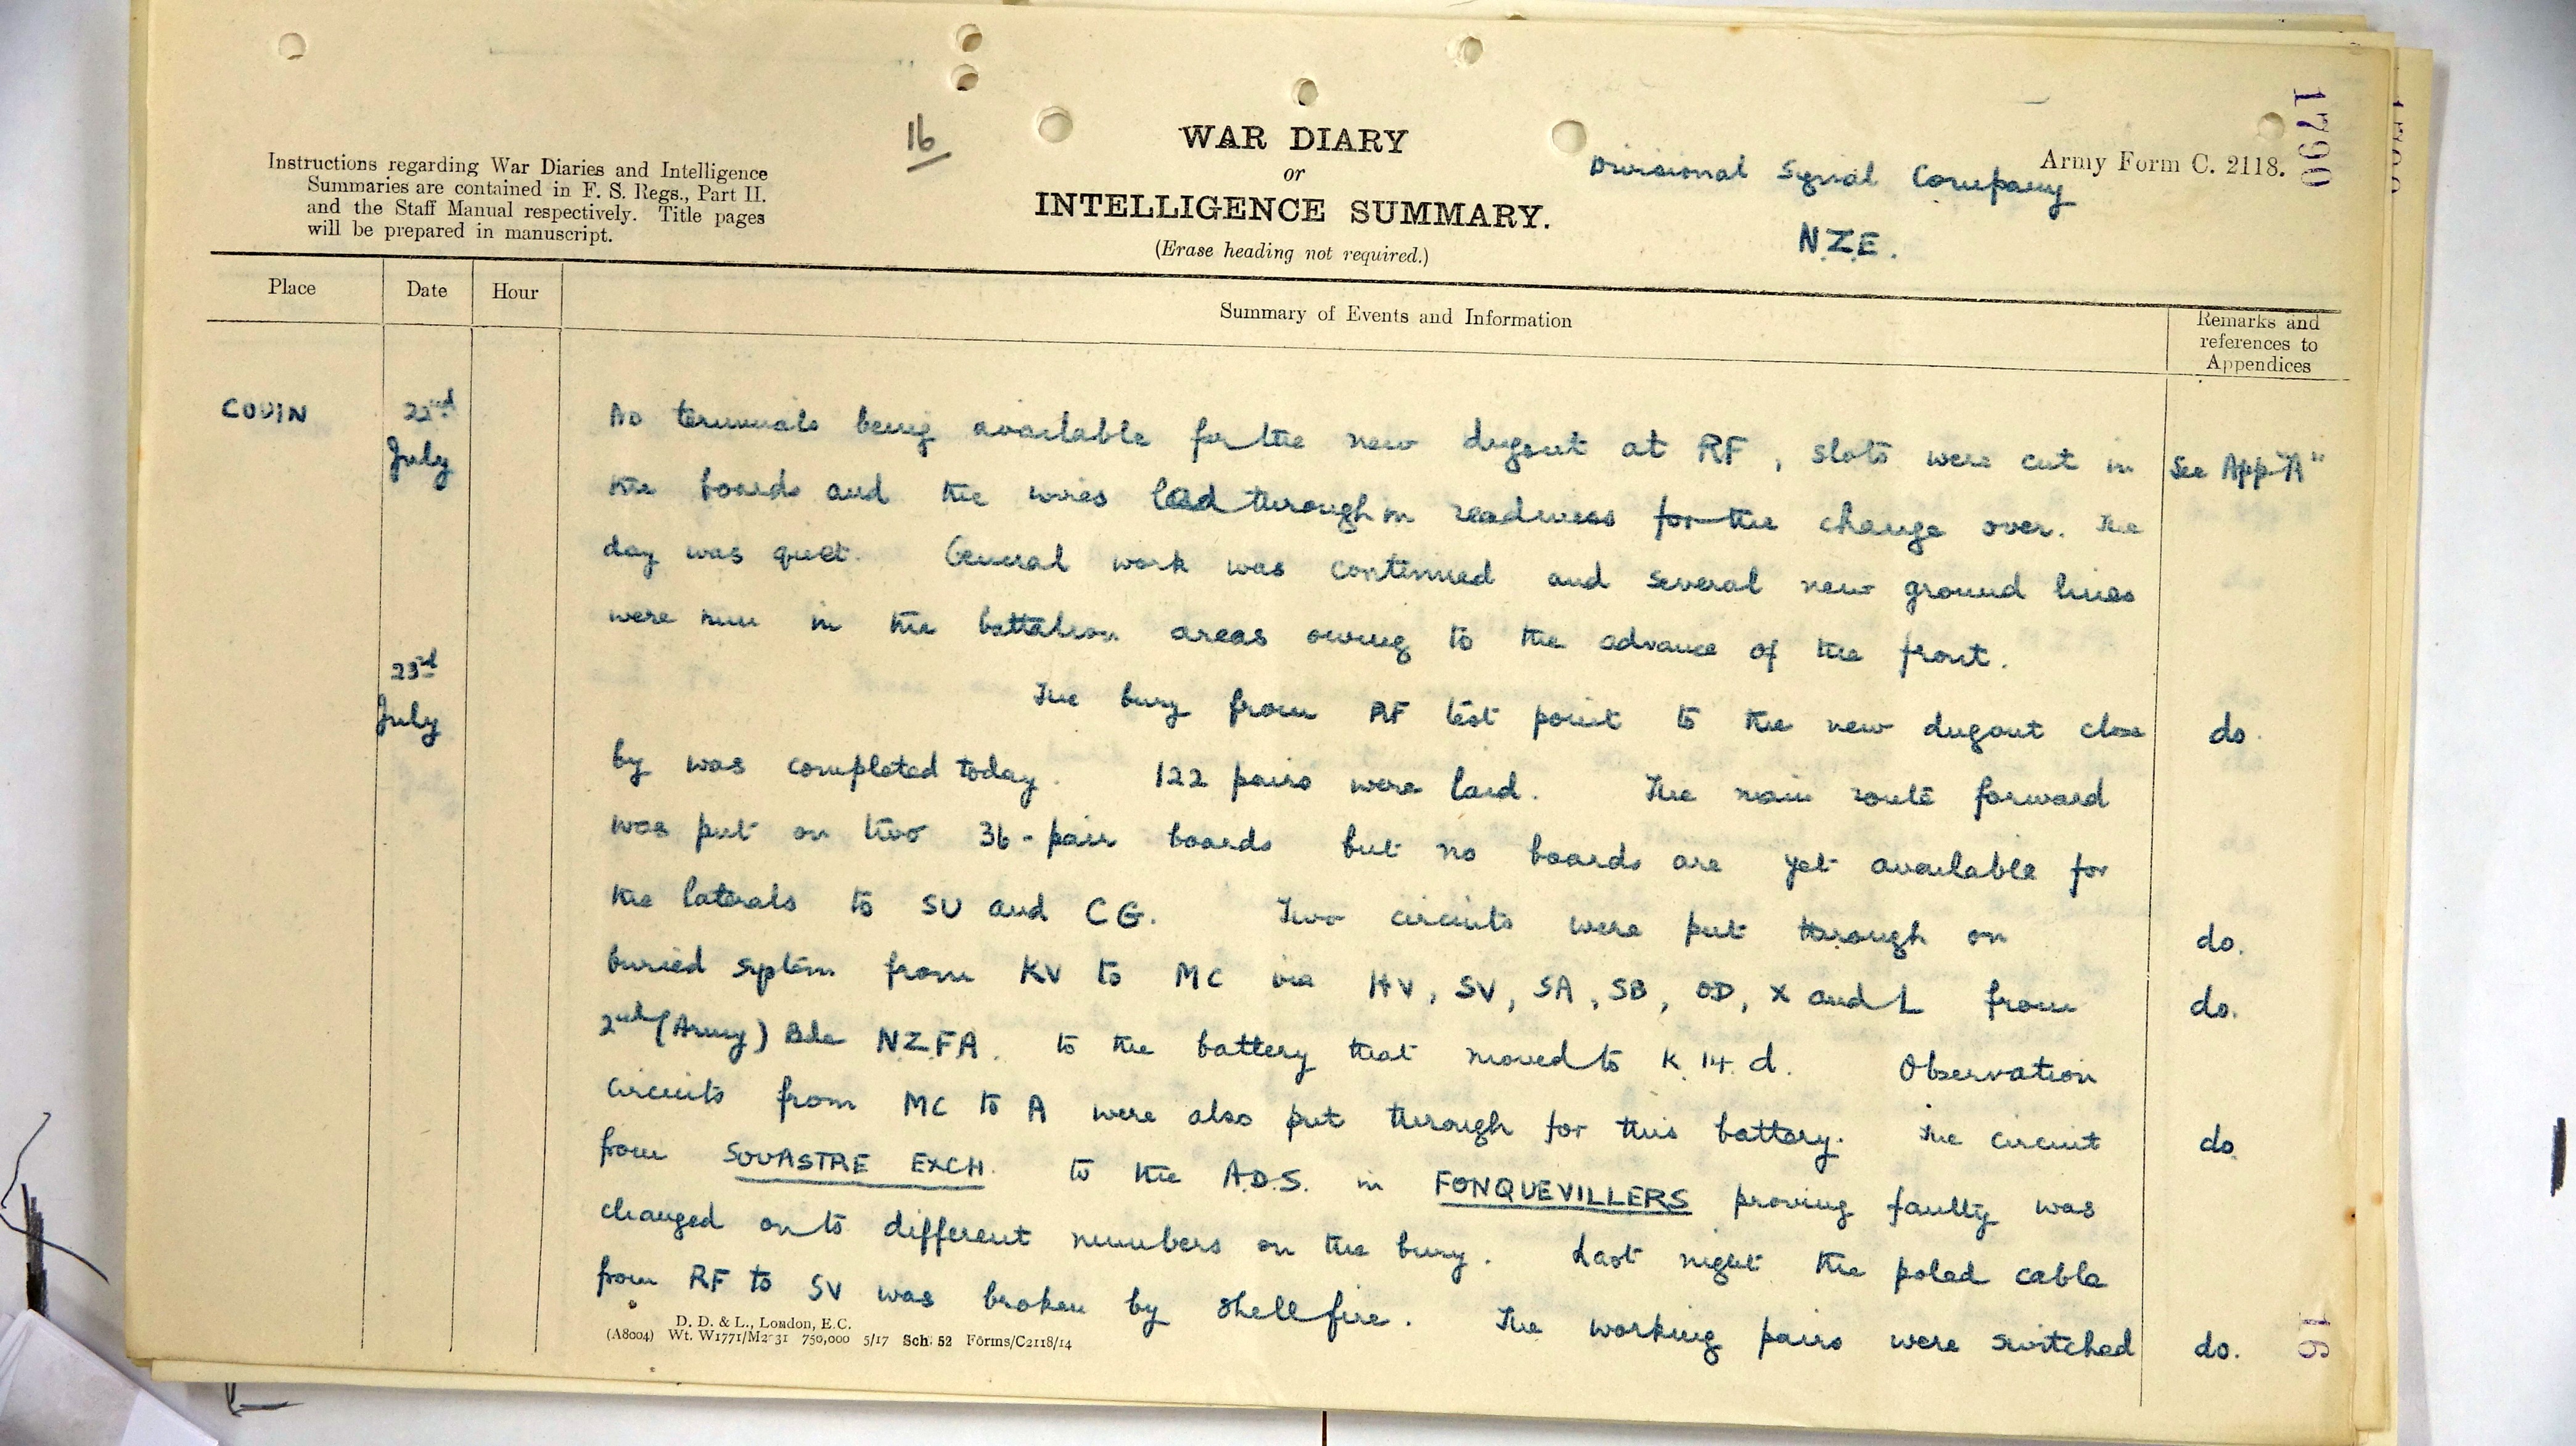 1790
16
WAR DIARY
or
INTELLIGENCE SUMMARY.
(Erase heading not required.)
Instructions regarding War Diaries and Intelligence
Summaries are contained in F. S. Regs., Part II.
and the Staff Manual respectively. Title pages
will be prepared in manuscript.
Army Form C. 2118.
Divisional Signal Company
N.Z.E.
Place Date Hour Summary of Events and Information Remarks and
references to
Appendices
COUIN 22nd July No terminals being available for the new dugout at RF, slots were cut in See App "A"
the boards and the wires lead through in readiness for the change over. The
day was quiet. General work was continued and several new ground lines
were run in the battalion areas owing to the advance of the front.
23rd July The bury from RF test point to the new dugout close do.
by was completed today. 122 pairs were laid. The main route forward
was put on two 36-pair boards but no boards are yet available for
the laterals to SU and CG. Two circuits were put through on do.
buried system from KV to MC via HV, SV, SA, SB, OD, X and L from do.
2nd (Army) Bde N.Z.F.A. to the battery that moved to K.14.d. Observation
circuits from MC to A were also put through for this battery. The circuit do
from SOUASTRE EXCH. to the A.D.S. in FONQUEVILLERS proving faulty was
changed on to different numbers on the bury. Last night the poled cable
from RF to SV was broken by shell fire. The working pairs were switched do.
D. D. & L., London, E.C.
(A8004) Wt. W1771/M2031 750,000 5/17 Sch. 52 Forms/C2118/14
16